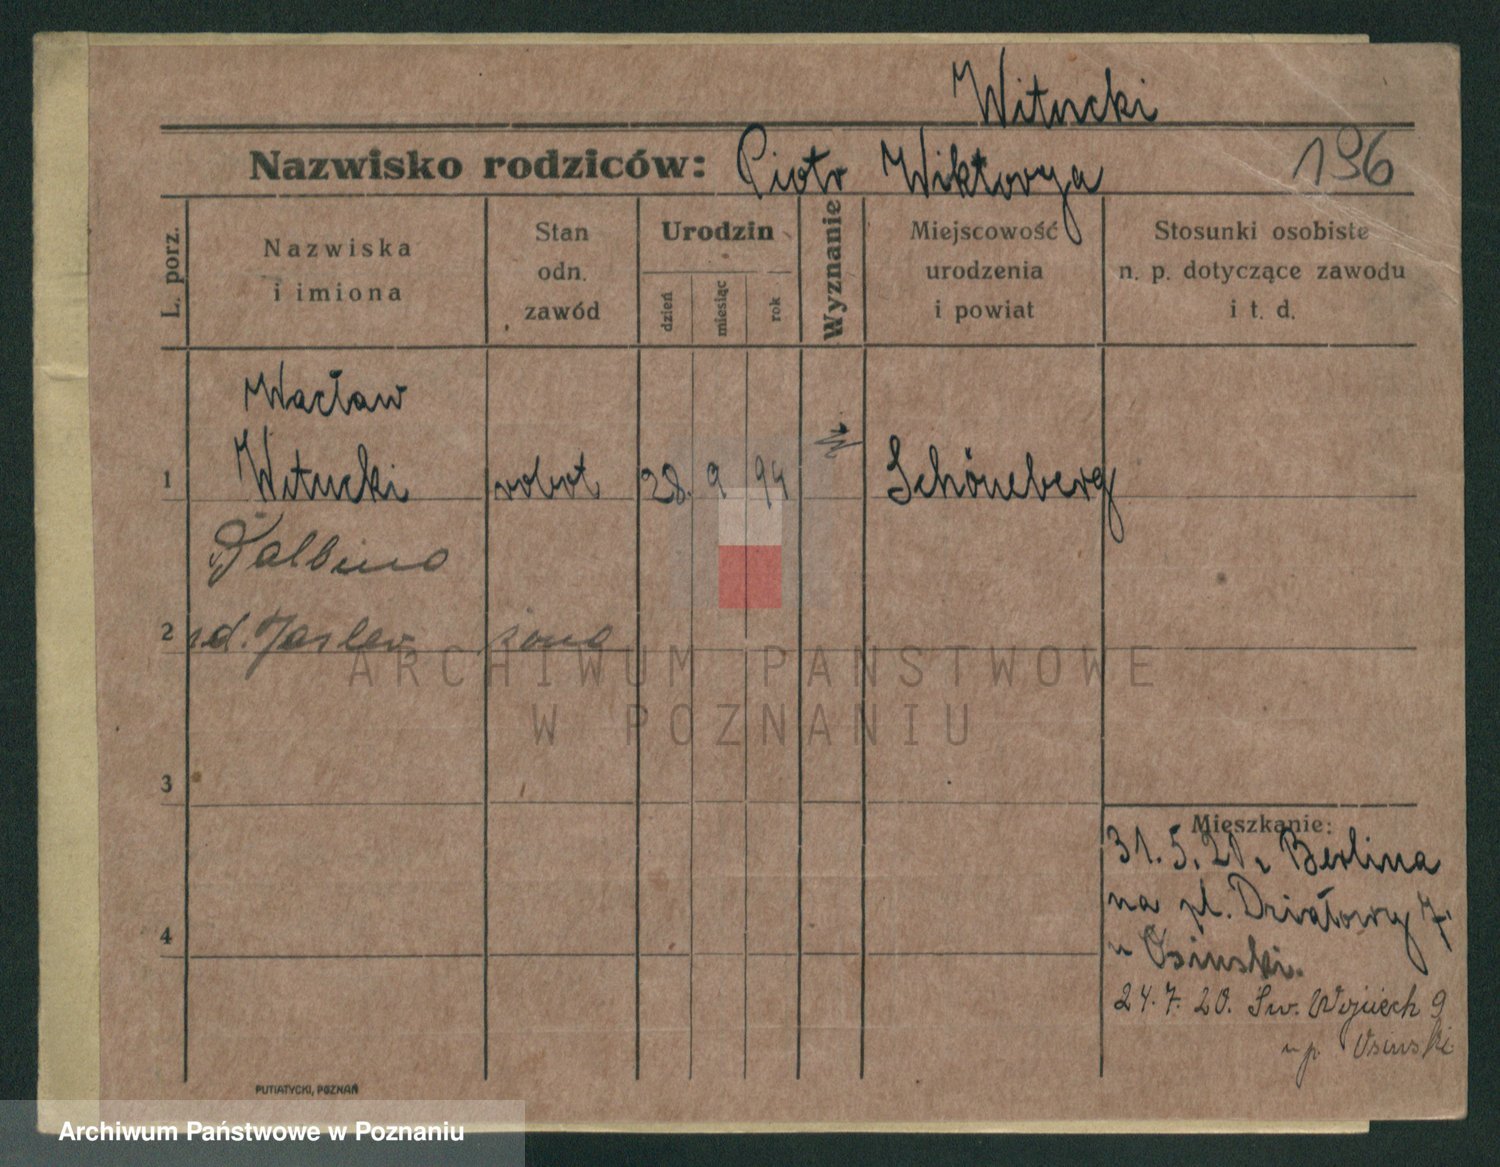 Witucki
Nazwisko rodziców: Piotr Wiktorya 196
L. porz.
Nazwiska
i imiona
Stan
odn.
zawód
Urodzin
dzień
miesiąc
rok
Wyznanie
Miejscowość
urodzenia
i powiat
Stosunki osobiste
n. p. dotyczące zawodu
i t. d.
Wacław
1 Witucki robot 28. 9 94 Schöneberg
Balbina
2 żona
3
4
Mieszkanie:
31. 5. 20. z Berlina
na pl. Działowy 7
u Osinski.
24. 7. 20. Św. Wojciech 9
u p. Osinski
PUTIATYCKI, POZNAŃ
ARCHIWUM PAŃSTWOWE
W POZNANIU
Archiwum Państwowe w Poznaniu